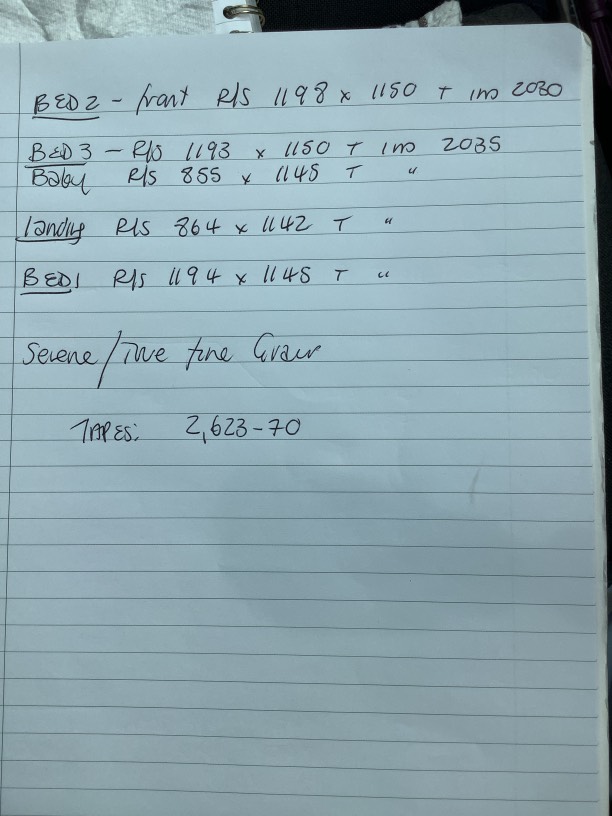 BED2 - front R/S 1198 x 1150 T IND 2030
BED3 - R/S 1193 x 1150 T IND 2035
Baby R/S 855 x 1145 T "
landing R/S 864 x 1142 T "
BED1 R/S 1194 x 1145 T "
Serene/True fine Grain
TAPES: 2,623-70